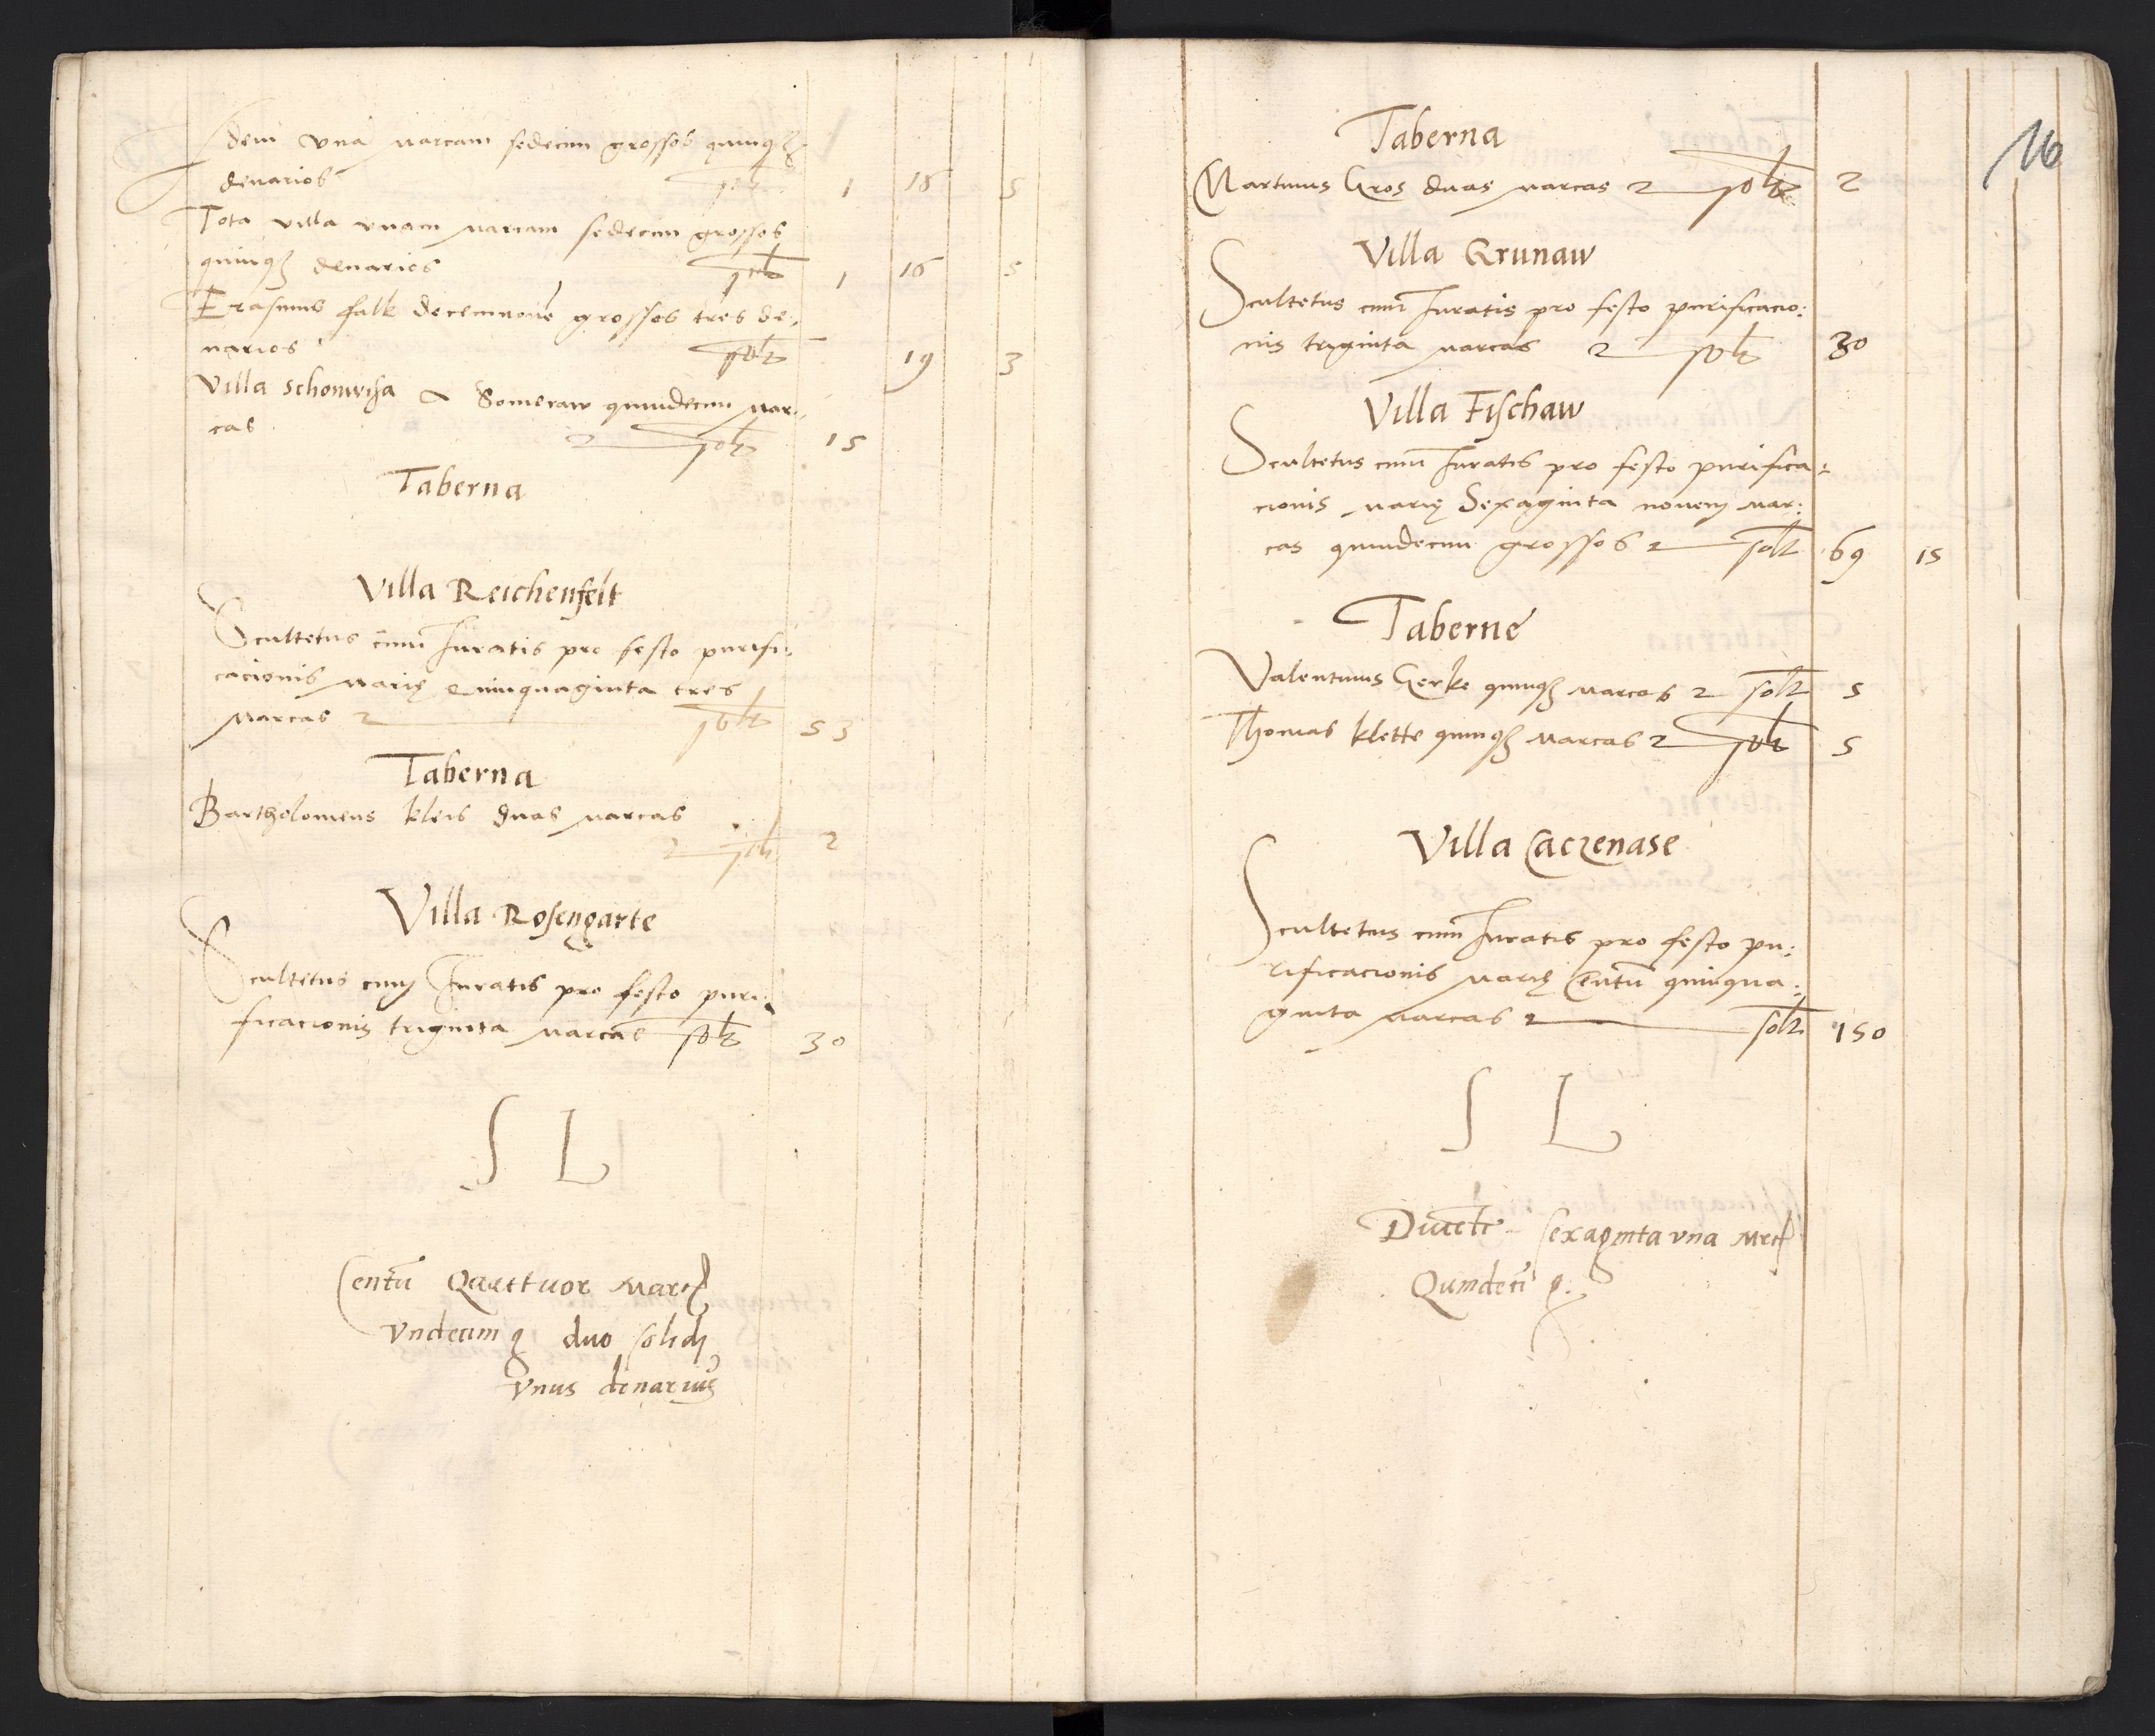 Idem una marcam sedecim grossos quinqȝ
denarios solt 1 16 5
Tota villa vnam marcam sedecim grossos
quinqȝ denarios solt 1 16 5
Erasmus falk decemnoue grossos tres de:
narios solt 19 3
Villa schonwisa & Someraw quindecim mar:
cas 2 solt 15
Taberna
Villa Reichenfelt
Scultetus cum Iuratis pro festo purifi:
cacionis marię quinquaginta tres
marcas 2 solt 53
Taberna
Bartholomeus kleis duas marcas
2 solt 2
Villa Rosengarte
Scultetus cum Iuratis pro festo puri:
ficacionis triginta marcas solt 30
S L
Centū Quattuor marc
vndecim g duo solidi
vnus denarius
16
Taberna
Martinus Gros duas marcas 2 solt 2
Villa Grunaw
Scultetus cum Iuratis pro festo purificacio:
nis triginta marcas 2 solt 30
Villa Fischaw
Scultetus cum Iuratis pro festo purifica:
cionis marię Sexaginta nouem mar:
cas quindecim grossos 2 solt 69 15
Taberne
Valentinus Gerke quinqȝ marcas 2 solt 5
Thomas klette quinqȝ marcas 2 solt 5
Villa Caczenase
Scultetus cum Iuratis pro festo pu:
rificacionis marię Centū quinqua:
ginta marcas 2 solt 150
S L
Ducente sexaginta vna mrc
Quindeci g: